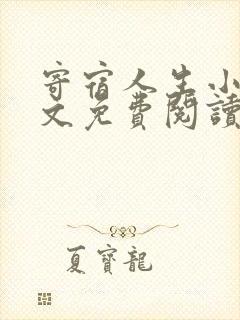 寄宿人生小
文免費閱讀
夏寶龍